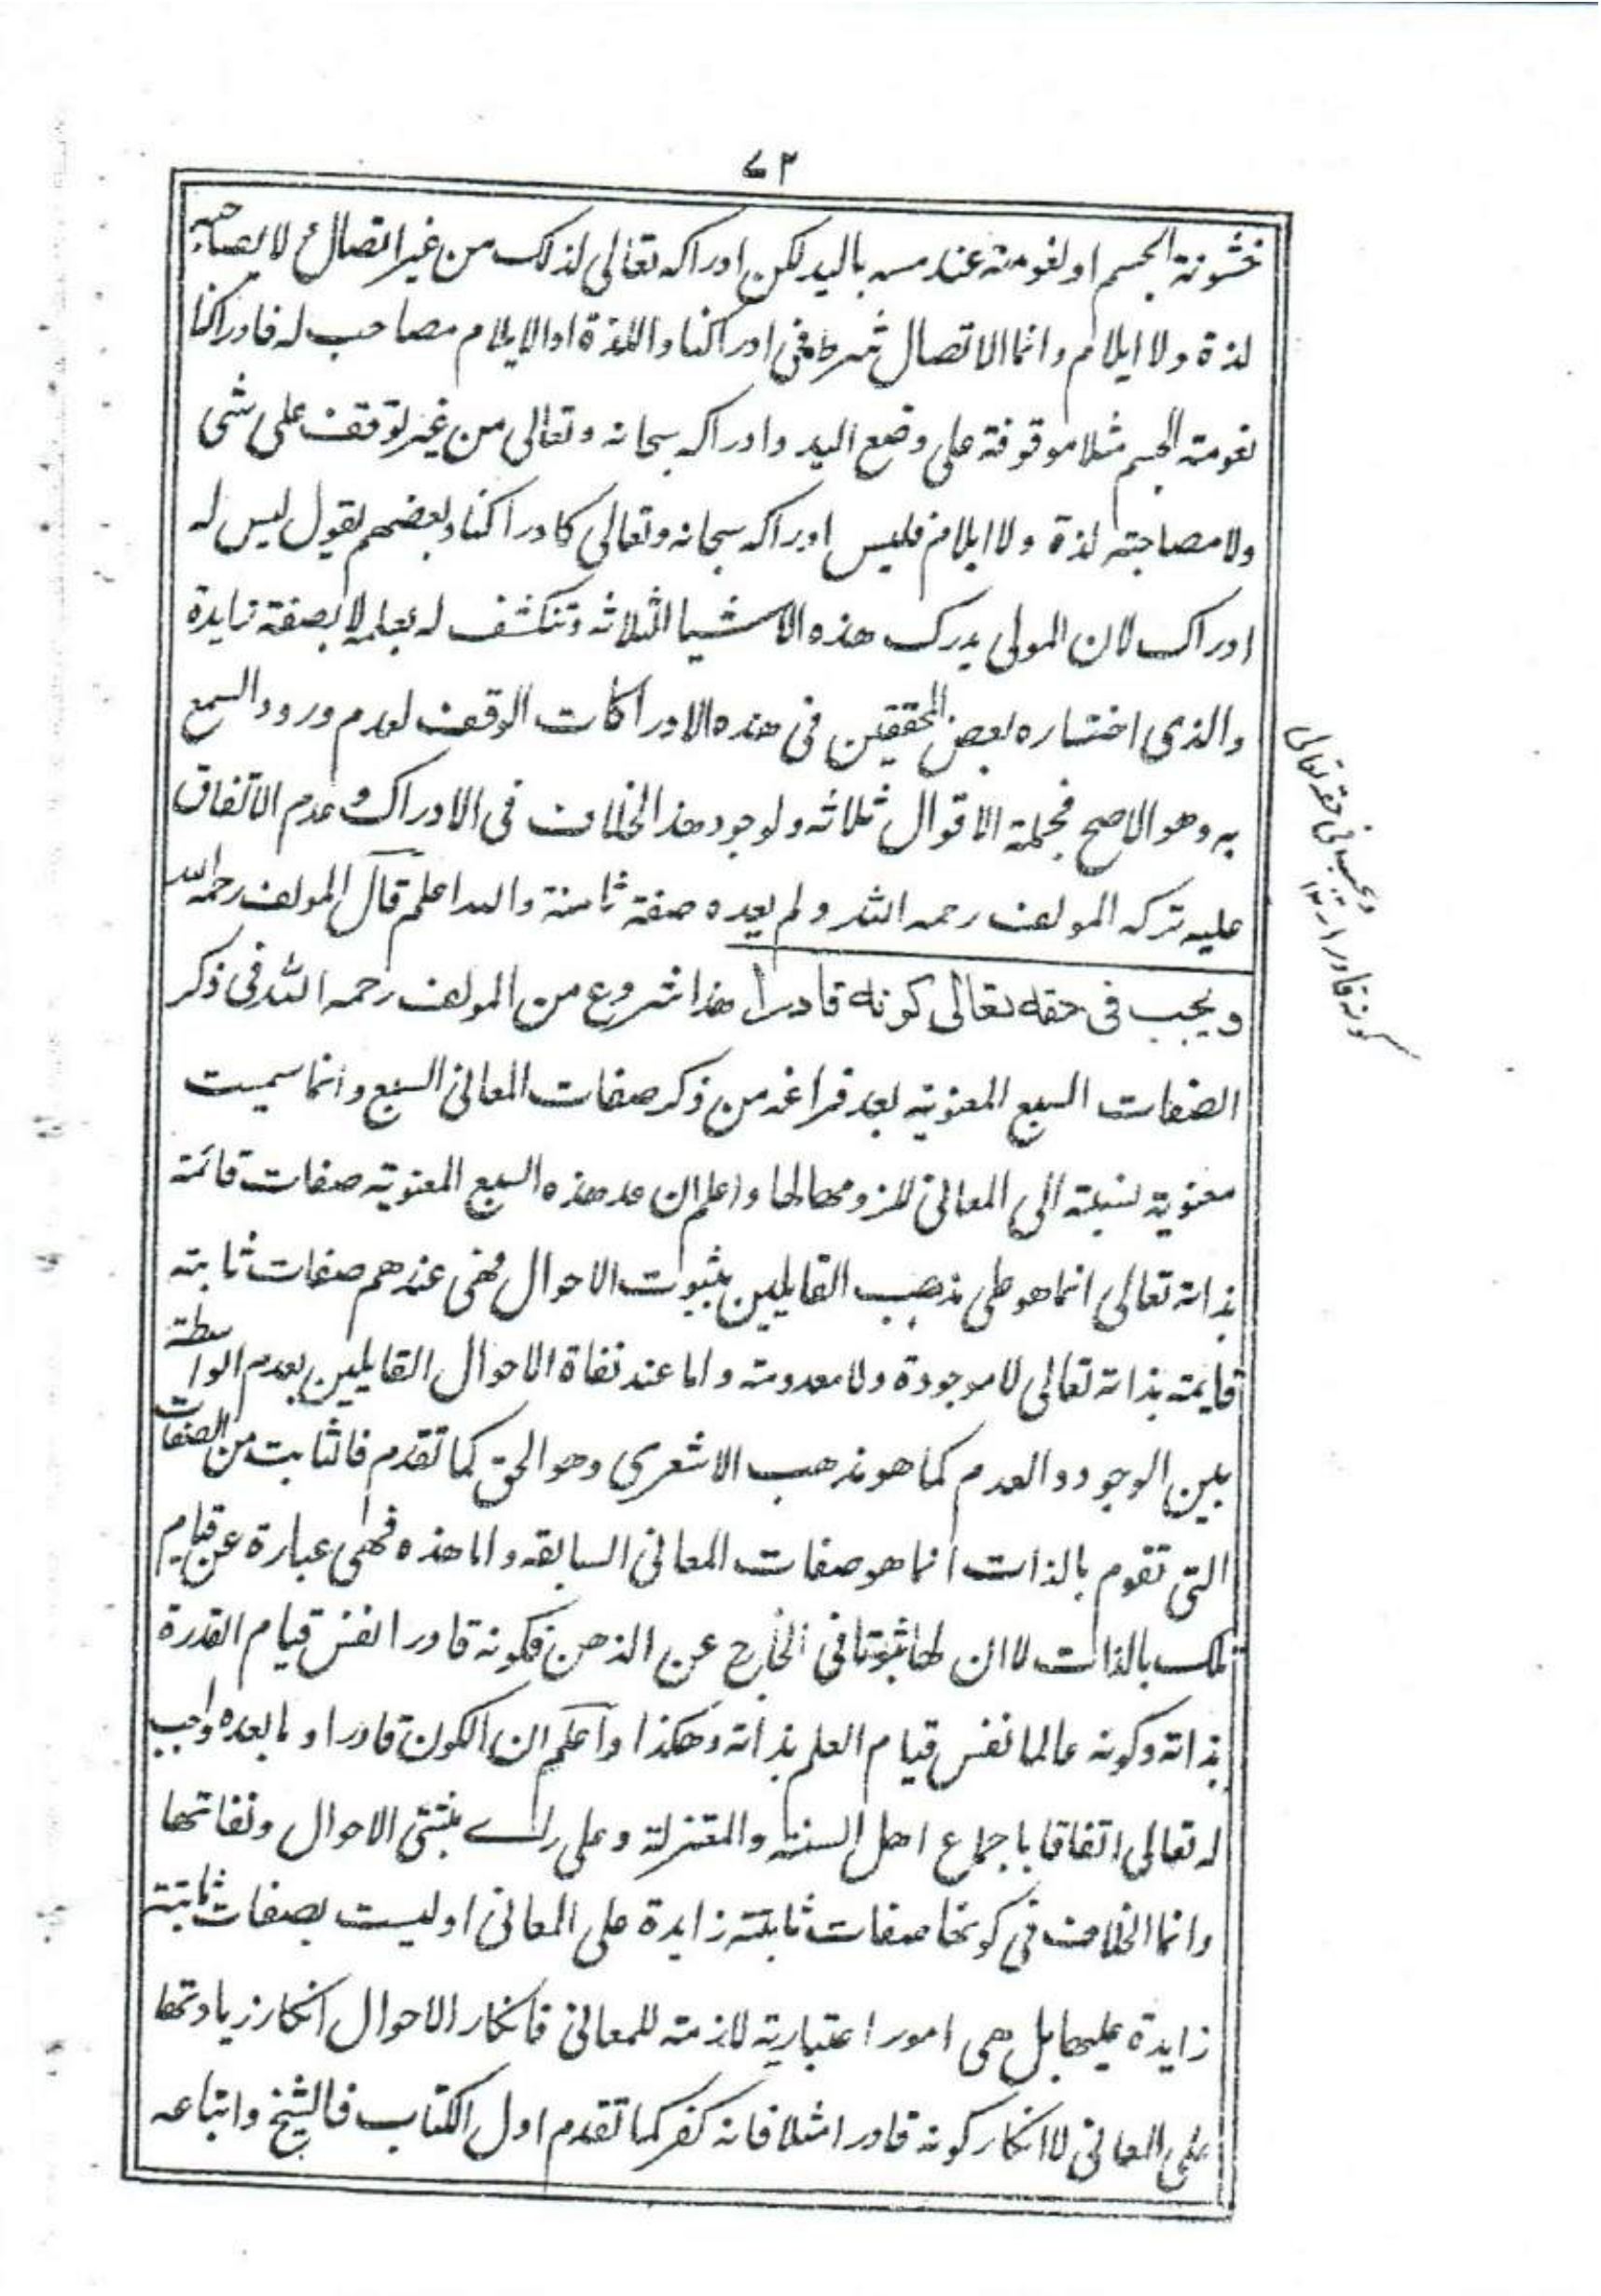 ٧٣
خشونة الجسم او لنعومته عند مسه باليد لكن ادراكه تعالى لذلك من غير اتصال لا يصاحبه
لذة ولا ايلام وانما الاتصال شرط في ادراكنا واللذة او الايلام مصاحب له فادراكنا
نعومة الجسم مثلا موقوفة على وضع اليد وادراكه سبحانه وتعالى من غير توقف على شئ
ولا مصاحبة لذة ولا ايلام فليس ادراكه سبحانه وتعالى كادراكنا وبعضهم يقول ليس له
ادراك لان المولى يدرك هذه الاشيا الثلاثة وتنكشف له بعلمه لا بصفة زايدة
والذى اختاره بعض المحققين فى هذه الادراكات الوقف لعدم ورود السمع
به وهو الاصح فجملة الاقوال ثلاثة ولوجود هذا الخلاف فى الادراك وعدم الاتفاق
عليه تركه المولف رحمه الله ولم يعده صفة ثامنة والله اعلم قال المولف رحمه الله
ويجب فى حقه تعالى كونه قادرا هذا شروع من المولف رحمه الله فى ذكر
الصفات السبع المعنوية بعد فراغه من ذكر صفات المعانى السبع وانما سميت
معنوية نسبة الى المعانى للزومها لها واعلم ان عد هذه السبع المعنوية صفات قائمة
بذاته تعالى انما هو على مذهب القايلين بثبوت الاحوال فهى عندهم صفات ثابتة
قايمة بذاته تعالى لا موجودة ولا معدومة واما عند نفاة الاحوال القايلين بعدم الواسطة
بين الوجود والعدم كما هو مذهب الاشعرى وهو الحق كما تقدم فالثابت من الصفات
التى تقوم بالذات انما هو صفات المعانى السابقة واما هذه فهى عبارة عن قيام
تلك بالذات لا ان لها ثبوتا فى الخارج عن الذهن فكونه قادرا نفس قيام القدرة
بذاته وكونه عالما نفس قيام العلم بذاته وهكذا واعلم ان الكون قادرا وما بعده واجب
له تعالى اتفاقا باجماع اهل السنة والمعتزلة وعلى راى مثبتى الاحوال ونفاتها
وانما الخلاف فى كونها صفات ثابتة زايدة على المعانى او ليست بصفات ثابتة
زايدة عليها بل هى امور اعتبارية لازمة للمعانى فانكار الاحوال انكار زيادتها
على المعانى لا انكار كونه قادرا مثلا فانه كفر كما تقدم اول الكتاب فالشيخ واتباعه
ويجب فى حقه تعالى
كونه قادرا